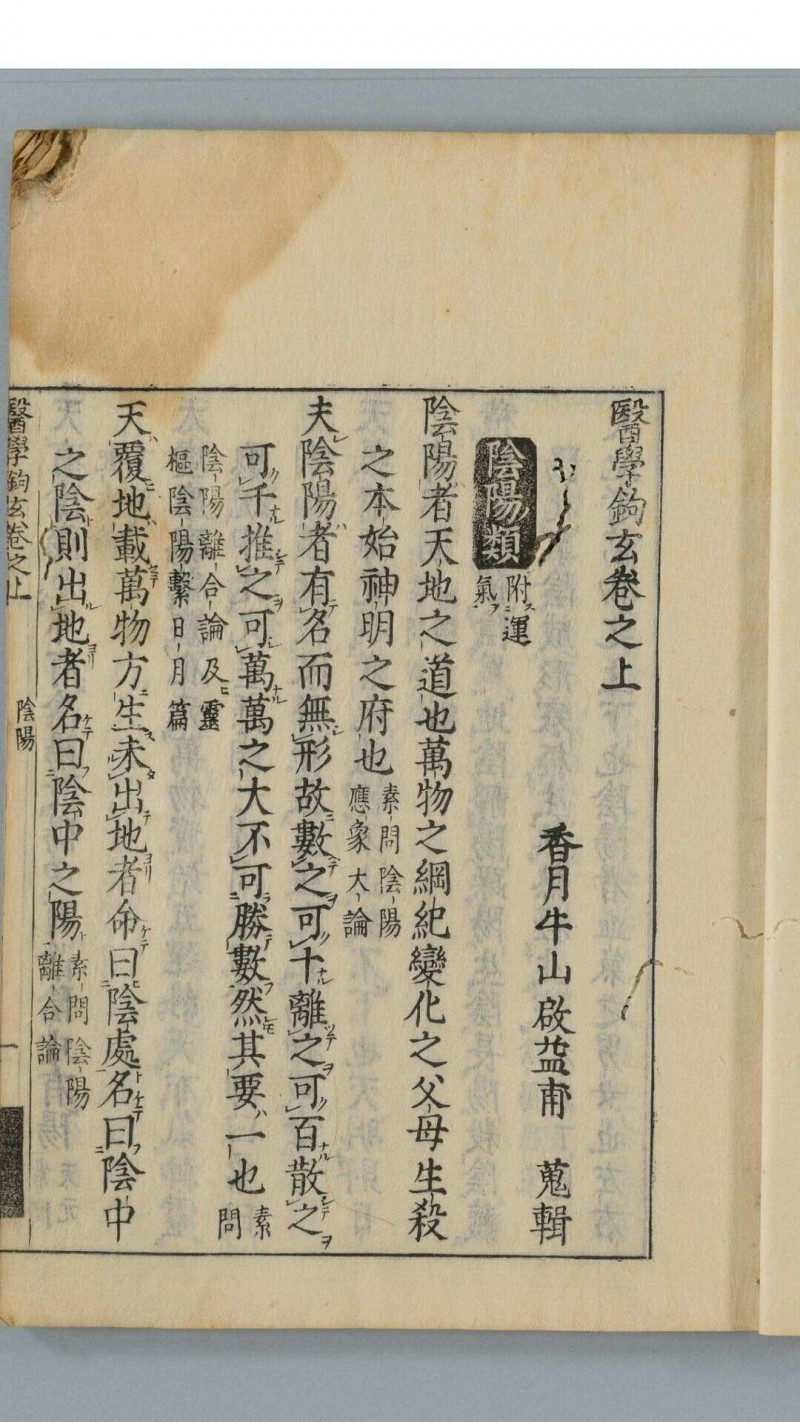 醫學鈎玄卷之上
香月牛山啟益甫 蒐輯
陰陽類 附運氣
陰陽者天地之道也萬物之綱紀變化之父母生殺
之本始神明之府也 素問陰陽應象大論
夫陰陽者有名而無形故數之可十離之可百散之
可千推之可萬萬之大不可勝數然其要一也 素問
陰陽離合論及靈樞陰陽繫日月篇
天覆地載萬物方生未出地者命曰陰處名曰陰中
之陰則出地者名曰陰中之陽 素問陰陽離合論
醫學鈎玄卷之上
陰陽
一